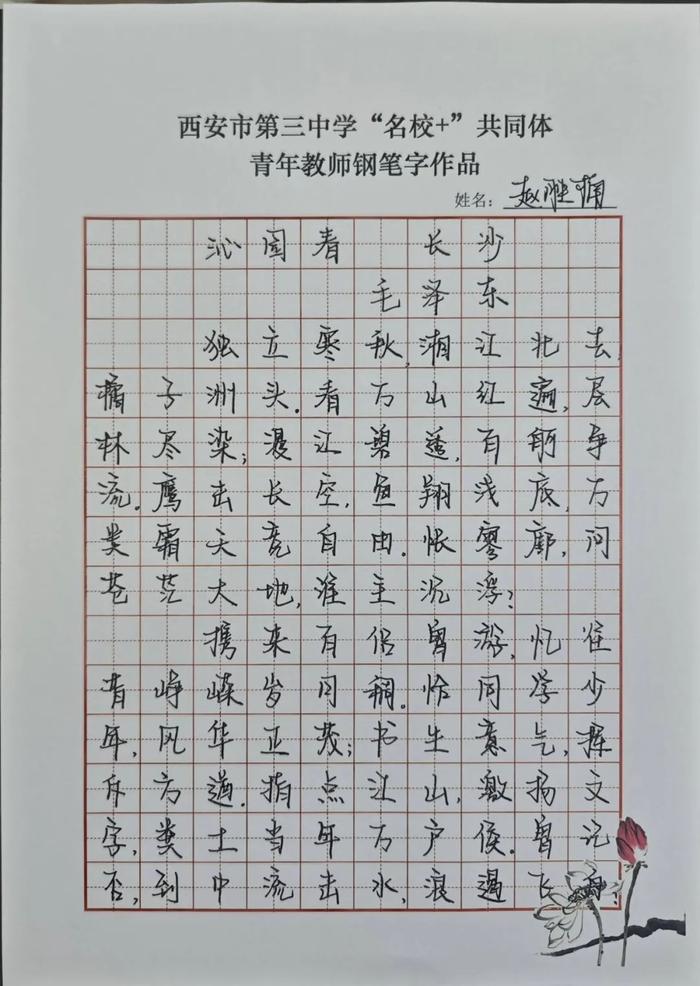 西安市第三中学“名校+”共同体
青年教师钢笔字作品
姓名：赵胜楠
沁园春 长沙
毛泽东
独立寒秋，湘江北去，
橘子洲头。看万山红遍，层
林尽染；漫江碧透，百舸争
流。鹰击长空，鱼翔浅底，万
类霜天竞自由。怅寥廓，问
苍茫大地，谁主沉浮？
携来百侣曾游，忆往
昔峥嵘岁月稠。恰同学少
年，风华正茂；书生意气，挥
斥方遒。指点江山，激扬文
字，粪土当年万户侯。曾记
否，到中流击水，浪遏飞舟？